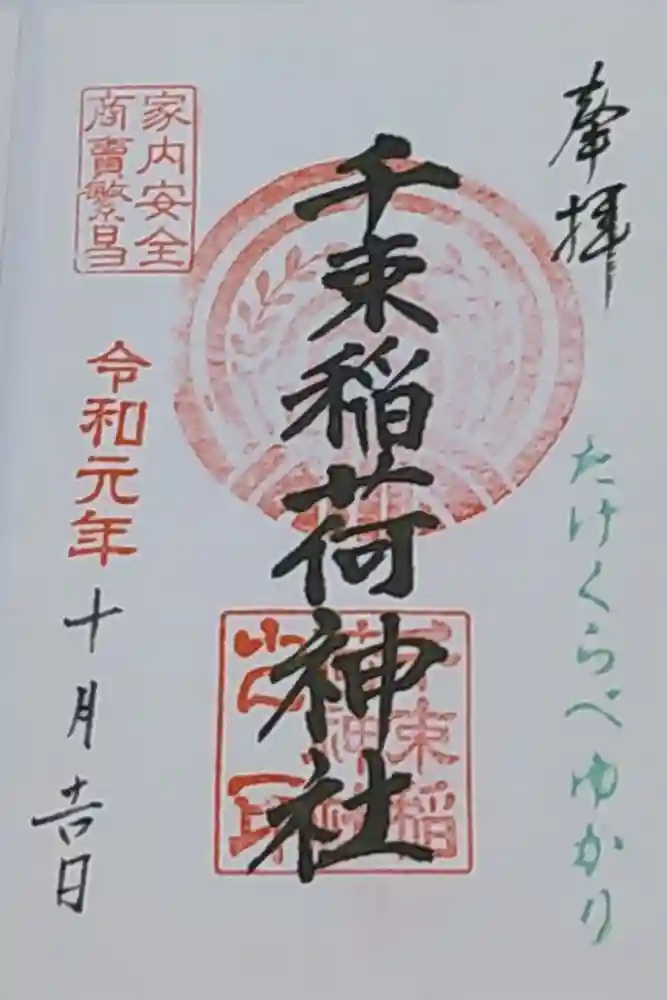 奉拝
たけくらべゆかり
千束稲荷神社
千束稲
荷神社
之印
家内安全
商賣繁昌
令和元年十月吉日